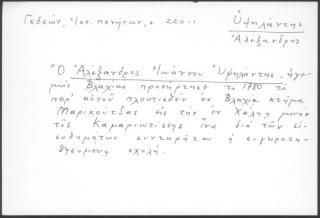 Γεδεών, Ἱστ. πενήτων, σ 220-1
Ὑψηλάντης
Ἀλέξανδρος
"Ὁ Ἀλέξανδρος Ἰωάννου Ὑψηλάντης, ἡγε
μὼν Βλαχίας προσήρτησε τῷ 1780 τὸ
παρ' αὐτοῦ ἐν Βλαχίᾳ κτῆμα
Μαρικούτσας εἰς τὴν ἐν Χάλκῃ μονὴν
τῆς Καμαριωτίσσης ἵνα διὰ τῶν εἰ-
σοδημάτων συντηρῆται ἡ συγκροτη-
θησομένη σχολή.